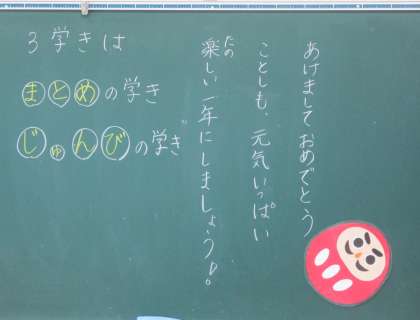 3学きは
まとめの学き
じゅんびの学き
あけましておめでとう
ことしも、元気いっぱい
楽しい一年にしましょう!。
たの